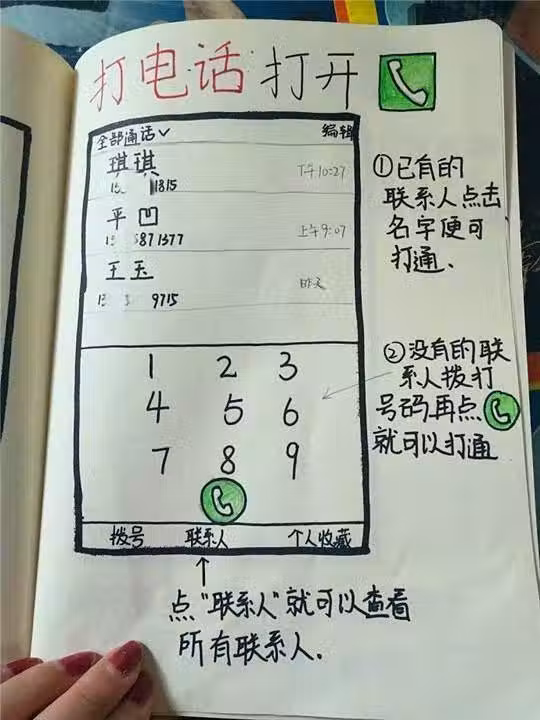 打电话 打开
全部通话 编辑
琪琪
下午10:27
1815
平凹
上午9:07
15 5871377
王玉
昨天
15 9715
1 2 3
4 5 6
7 8 9
拨号 联系人 个人收藏
①已有的
联系人点击
名字便可
打通.
②没有的联
系人拨打
号码再点
就可以打通
点“联系人”就可以查看
所有联系人.